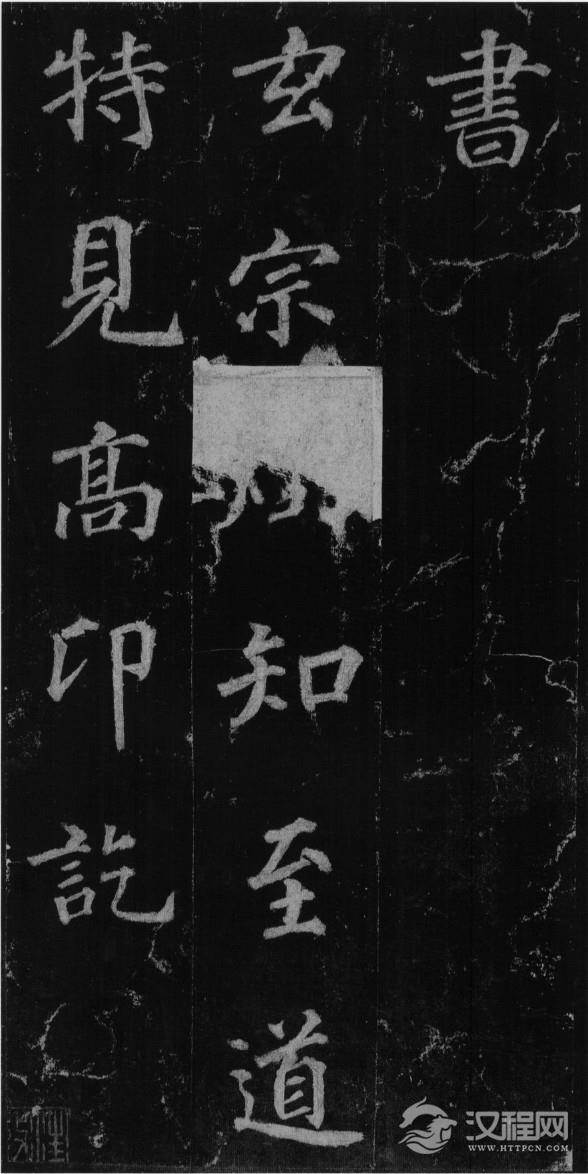 書
玄宗知至道
特見高印訖
汉程网
WWW.HTTPCN.COM